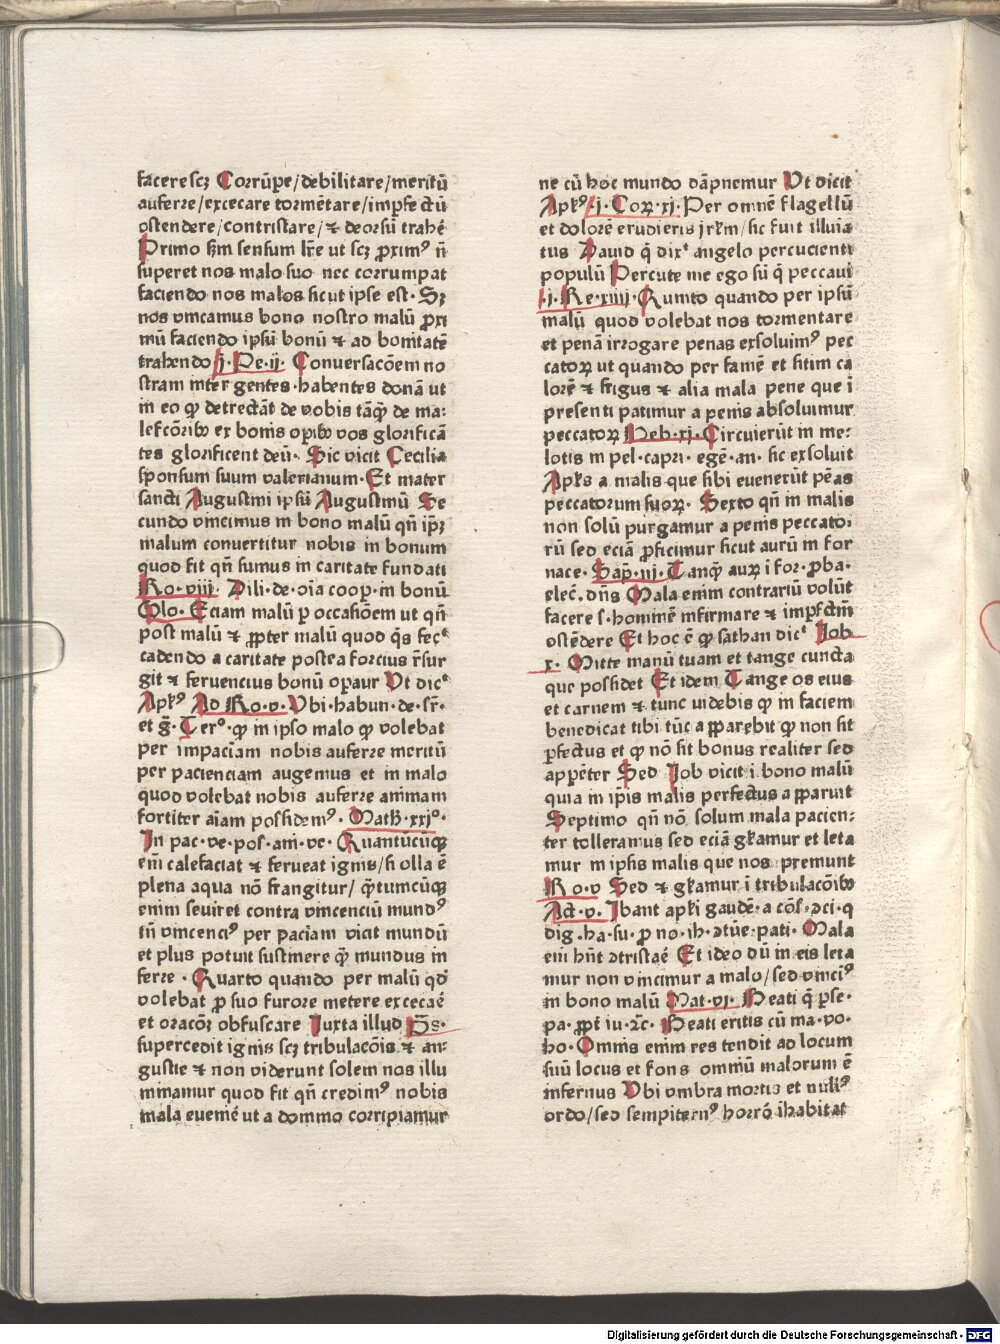 facere scꝫ Corrūpe/debilitare/meritū
auferre/excecare tormētare/imꝑfectū
ostendere/contristare/⁊ deorsū trahē
Primo ẜm sensum lr̄e ut scꝫ ꝓximꝰ n̄
superet nos malo suo nec corrumpat
faciendo nos malos sicut ipse est. Sꝫ
nos vincamus bono nostro malū ꝓxi
mū faciendo ipsū bonū ⁊ ad bonitatē
trahendo .j. Pe.ij. Conuersacōem no
stram inter gentes.habentes donā ut
in eo qꝫ detrectāt de vobis tāqͣ de ma:
lefcōribꝰ ex bonis oꝑibꝰ vos glorificā
tes glorificent deū. Sic vicit Cecilia
sponsum suum valerianum. Et mater
sancti Augustini ipsū Augustinū Se
cundo vincimus in bono malū qn̄ ip̄ꝫ
malum conuertitur nobis in bonum
quod fit qn̄ sumus in caritate fundati
Ro. viij. Dili.de.oīa coop.in bonū
Glo. Eciam malū ꝑ occasiōem ut qn̄
post malū ⁊ ꝓpter malū quod qͥs fecᵗ
cadendo a caritate postea forcius r̄sur
git ⁊ feruencius bonū oꝑaur Ut dicᵗ
Apl̓ꝰ Ad Ro.v. Ubi.habun.de.sr̄.
et ḡ. Terᵒ. qꝫ in ipso malo qꝫ volebat
per impaciam nobis auferre meritū
per pacienciam augemus et in malo
quod volebat nobis auferre animam
fortiter aīam possidemꝰ. Math̓.xxjᵒ.
In pac.ve.pos.ani.ve. Quantūcūqꝫ
em̄ calefaciat ⁊ ferueat ignis/si olla ē
plena aqua nō frangitur/qͣtumcūqꝫ
enim seuiret contra vincenciū mundꝰ
tn̄ vincenciꝰ per paciam vicit mundū
et plus potuit sustinere qͣ mundus in
ferre. Quarto quando per malū qd̓
volebat ꝓ suo furore metere excecaē
et oracōꝫ obfuscare Iuxta illud Ps.
supercedit ignis scꝫ tribulacōis ⁊ an:
gustie ⁊ non viderunt solem nos illu
minamur quod fit qn̄ credimꝰ nobis
mala eueniē ut a domino corripiamur
ne cū hoc mundo dāpnemur Ut dicit
Apl̓ꝰ .j. Corꝝ.xj. Per omnē flagellū
et dolorē erudieris jrl̓m/sic fuit illuīa
tus Dauid qͥ dixᵗ angelo percucienti
populū Percute me ego sū qͥ peccaui
.j. Re.xiiij. Quinto quando per ipsū
malū quod volebat nos tormentare
et penā irrogare penas exsoluimꝰ pec
catoꝝ ut quando per famē et sitim ca
lorē ⁊ frigus ⁊ alia mala pene que ī
presenti patimur a penis absoluimur
peccatoꝝ Heb.xj. Circuierūt in me:
lotis in pel.capri.egē.an. sic exsoluit
Apl̓s a malis que sibi euenerūt pēas
peccatorum suoꝝ. Sexto qn̄ in malis
non solū purgamur a penis peccato:
rū sed eciā ꝓficimur sicut aurū in for
nace. Sap̄.iij. Tanqͣ auꝝ ī for.ꝓba.
elec̄.dn̄s Mala enim contrariū volūt
facere s.hominē infirmare ⁊ imꝑfctm̄
ostēdere Et hoc ē qꝫ sathan dicᵗ Job
x. Mitte manū tuam et tange cuncta
que possidet Et idem Tange os eius
et carnem ⁊ tunc uidebis qꝫ in faciem
benedicat tibi tūc apparebit qꝫ non sit
ꝑfectus et qꝫ nō sit bonus realiter sed
appēter Sed Job vicit ī bono malū
quia in ip̄is malis perfectus apparuit
Septimo qn̄ nō solum mala pacien:
ter tolleramus sed eciā gl̓amur et leta
mur in ipsis malis que nos premunt
Ro.v Sed ⁊ gl̓amur ī tribulacōibꝰ
Act.v. Ibant apl̓i gaudē.a cōs̄.ↄci.q
dig.ha.su.ꝓ no.ih.ↄtūe.pati. Mala
em̄ hn̄t ↄtristaē Et ideo dū in eis leta
mur non vincimur a malo/sed vinciꝰ
in bono malū Mat.vj. Beati qͥ ꝑse.
pa.ꝓpt̄ iu.⁊c. Beati eritis cū ma.vo.
ho. Omnis enim res tendit ad locum
suū locus et fons omniū malorum ē
infernus Ubi vmbra mortis et nulꝰ
ordo/sed sempiternꝰ horrō ihabitat
Digitalisierung gefördert durch die Deutsche Forschungsgemeinschaft - DFG